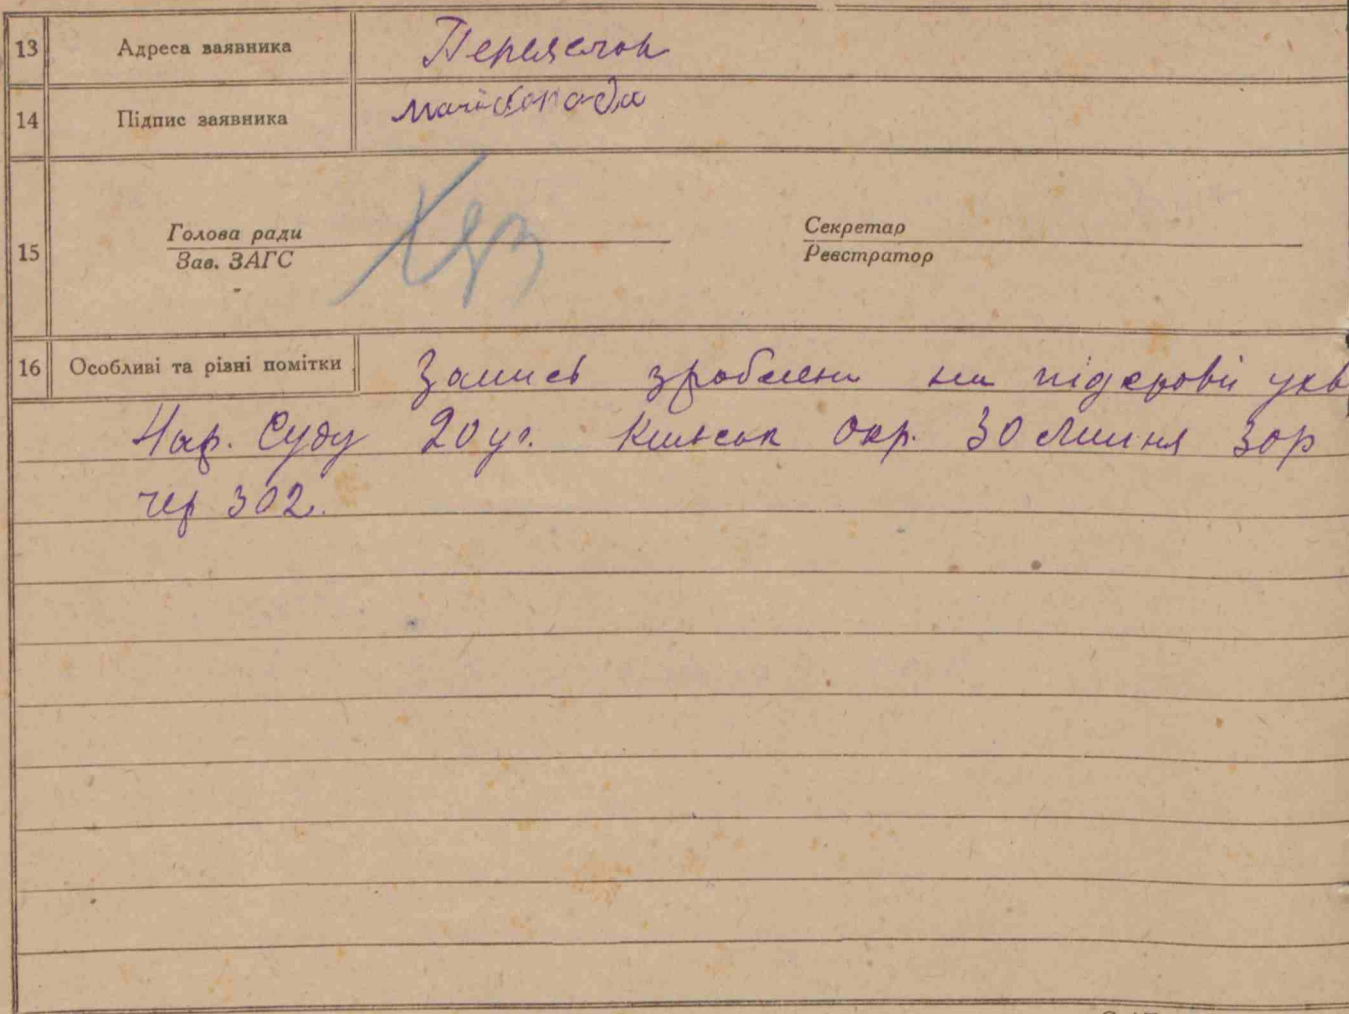 13 Адреса заявника Переселок
14 Підпис заявника
15 Голова ради
Зав. ЗАГС
Секретар
Реєстратор
16 Особливі та різні помітки Запись зроблена на підставі ухв
Нар. Суду 20 уч. Київськ Окр. 30 Липня 30р
чер 302.